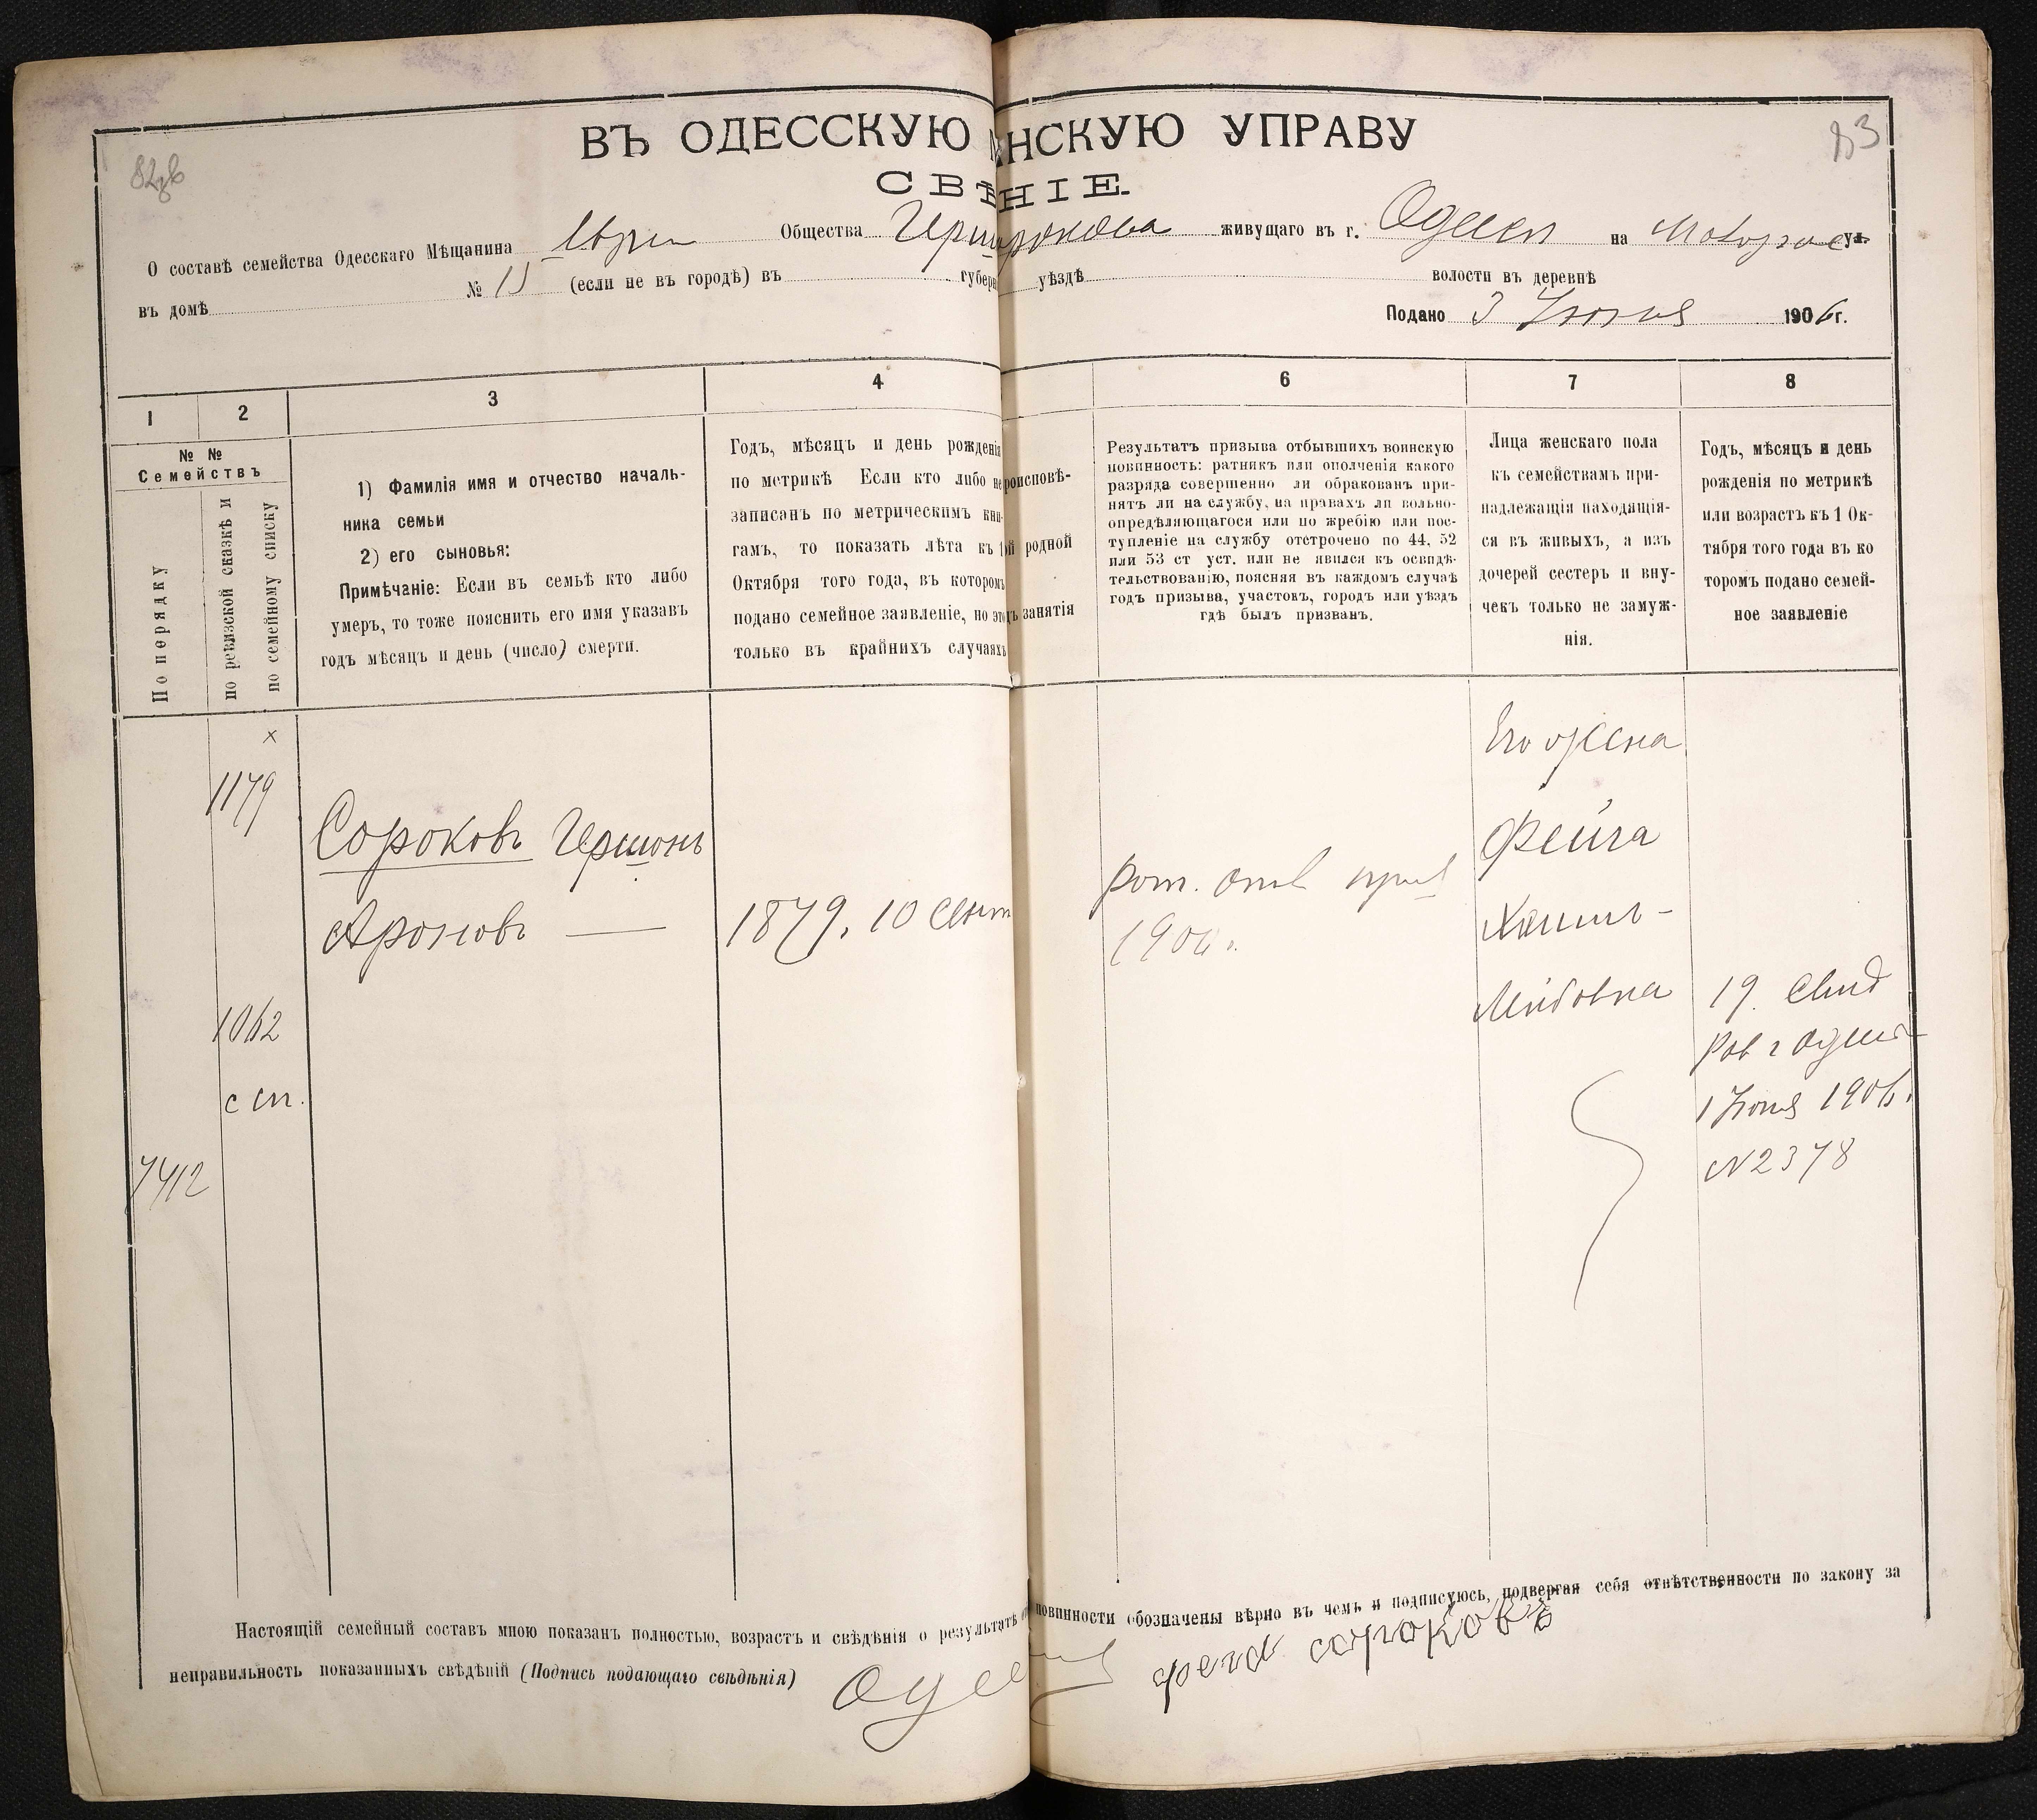 ВЪ ОДЕССКУЮ НСКУЮ УПРАВУ
83
СВѢНІЕ.
О составѣ семейства Одесскаго Мѣщанина Евр. Общества живущаго въ г. Одессѣ на ул.
въ домѣ № (если не въ городѣ) въ губерн уѣздѣ волости въ деревнѣ
Подано 3 Іюня 1906 г.
1 2 3 4 6 7 8
№ №
Семействъ
По порядку
по ревизской сказкѣ и
по семейному списку
1) Фамилія имя и отчество началь-
ника семьи
2) его сыновья:
Примѣчаніе: Если въ семьѣ кто либо
умеръ, то тоже пояснить его имя указавъ
годъ мѣсяцъ и день (число) смерти.
Годъ, мѣсяцъ и день рожденія
по метрикѣ Если кто либо не
записанъ по метрическимъ кни-
гамъ, то показать лѣта къ 1
Октября того года, въ которомъ
подано семейное заявленіе, но это
только въ крайнихъ случаяхъ
роисповѣ-
й родной
ъ занятія
Результатъ призыва отбывшихъ воинскую
повинность: ратникъ или ополченія какого
разряда совершенно ли обракованъ при-
нятъ ли на службу, на правахъ ли вольно-
опредѣляющагося или по жребію или пос-
тупленіе на службу отстрочено по 44, 52
или 53 ст уст. или не явился къ освидѣ-
тельствованію, поясняя въ каждомъ случаѣ
годъ призыва, участокъ, городъ или уѣздъ
гдѣ былъ призванъ.
Лица женскаго пола
къ семействамъ при-
надлежащія находящія-
ся въ живыхъ, а изъ
дочерей сестеръ и вну-
чекъ только не замуж-
нія.
Годъ, мѣсяцъ и день
рожденія по метрикѣ
или возрастъ къ 1 Ок-
тября того года въ ко
торомъ подано семей-
ное заявленіе
×
1179
Сороковъ Гершонъ
Ароновъ —
1879, 10 Сент
1062
с сп.
7412
рат. опол
Его жена
Фейга
19. Свид
Рав г Одессы
1 Іюня 1906.
№ 2378
Настоящій семейный составъ мною показанъ полностью, возрастъ и свѣдѣнія о результатѣ повинности обозначены вѣрно въ чемъ и подписуюсь, подвергая себя отвѣтственности по закону за
неправильность показанныхъ свѣдѣній (Подпись подающаго свѣдѣнія) сороковъ